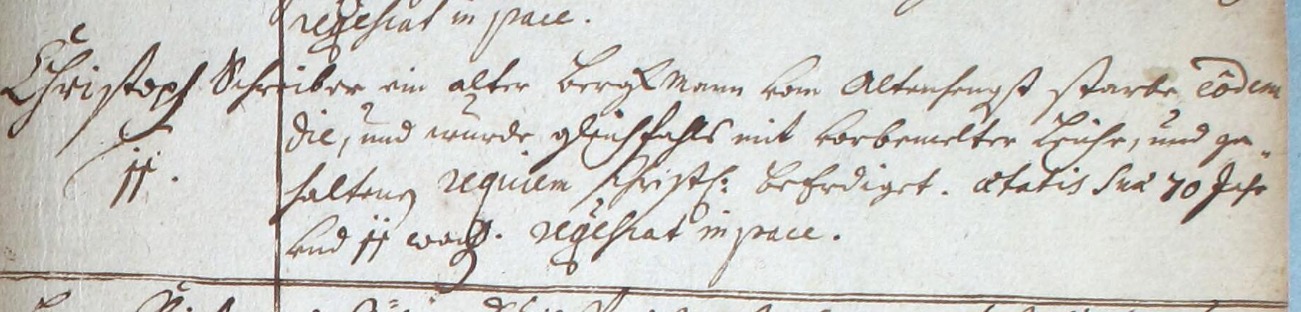 requiescat in pace.
Christoph Schreiber ein alter bergkMann vom Altenhengst starbe eodem
die, und wurde gleichfahls mit vorbemelter Leiche, und ge„
jj.
haltenen requiem christl: beerdiget. ætatis suæ 70 Jahr
und jj woch. requiescat in pace.